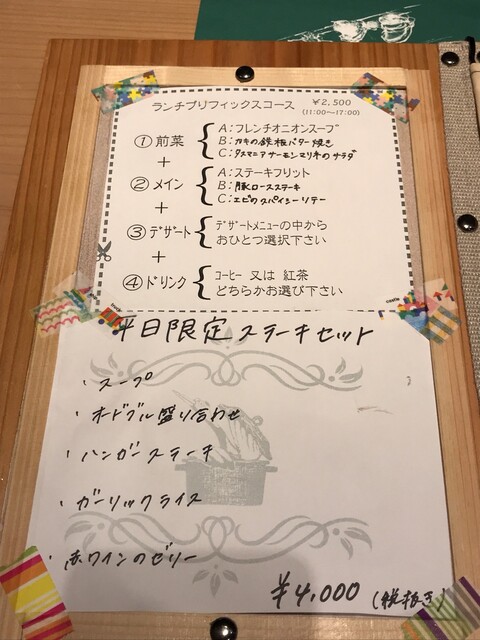 ランチプリフィックスコース ￥2,500
(11:00〜17:00)
① 前菜
A:フレンチオニオンスープ
B:カキの鉄板バター焼き
C:タスマニアサーモンマリネのサラダ
+
② メイン
A:ステーキフリット
B:豚ロースステーキ
C:エビのスパイシーソテー
+
③ デザート
デザートメニューの中から
おひとつ選択下さい
+
④ ドリンク
コーヒー 又は 紅茶
どちらかお選び下さい
平日限定ステーキセット
・スープ
・オードブル盛り合わせ
・ハンガーステーキ
・ガーリックライス
・赤ワインのゼリー
¥4,000 (税抜き)